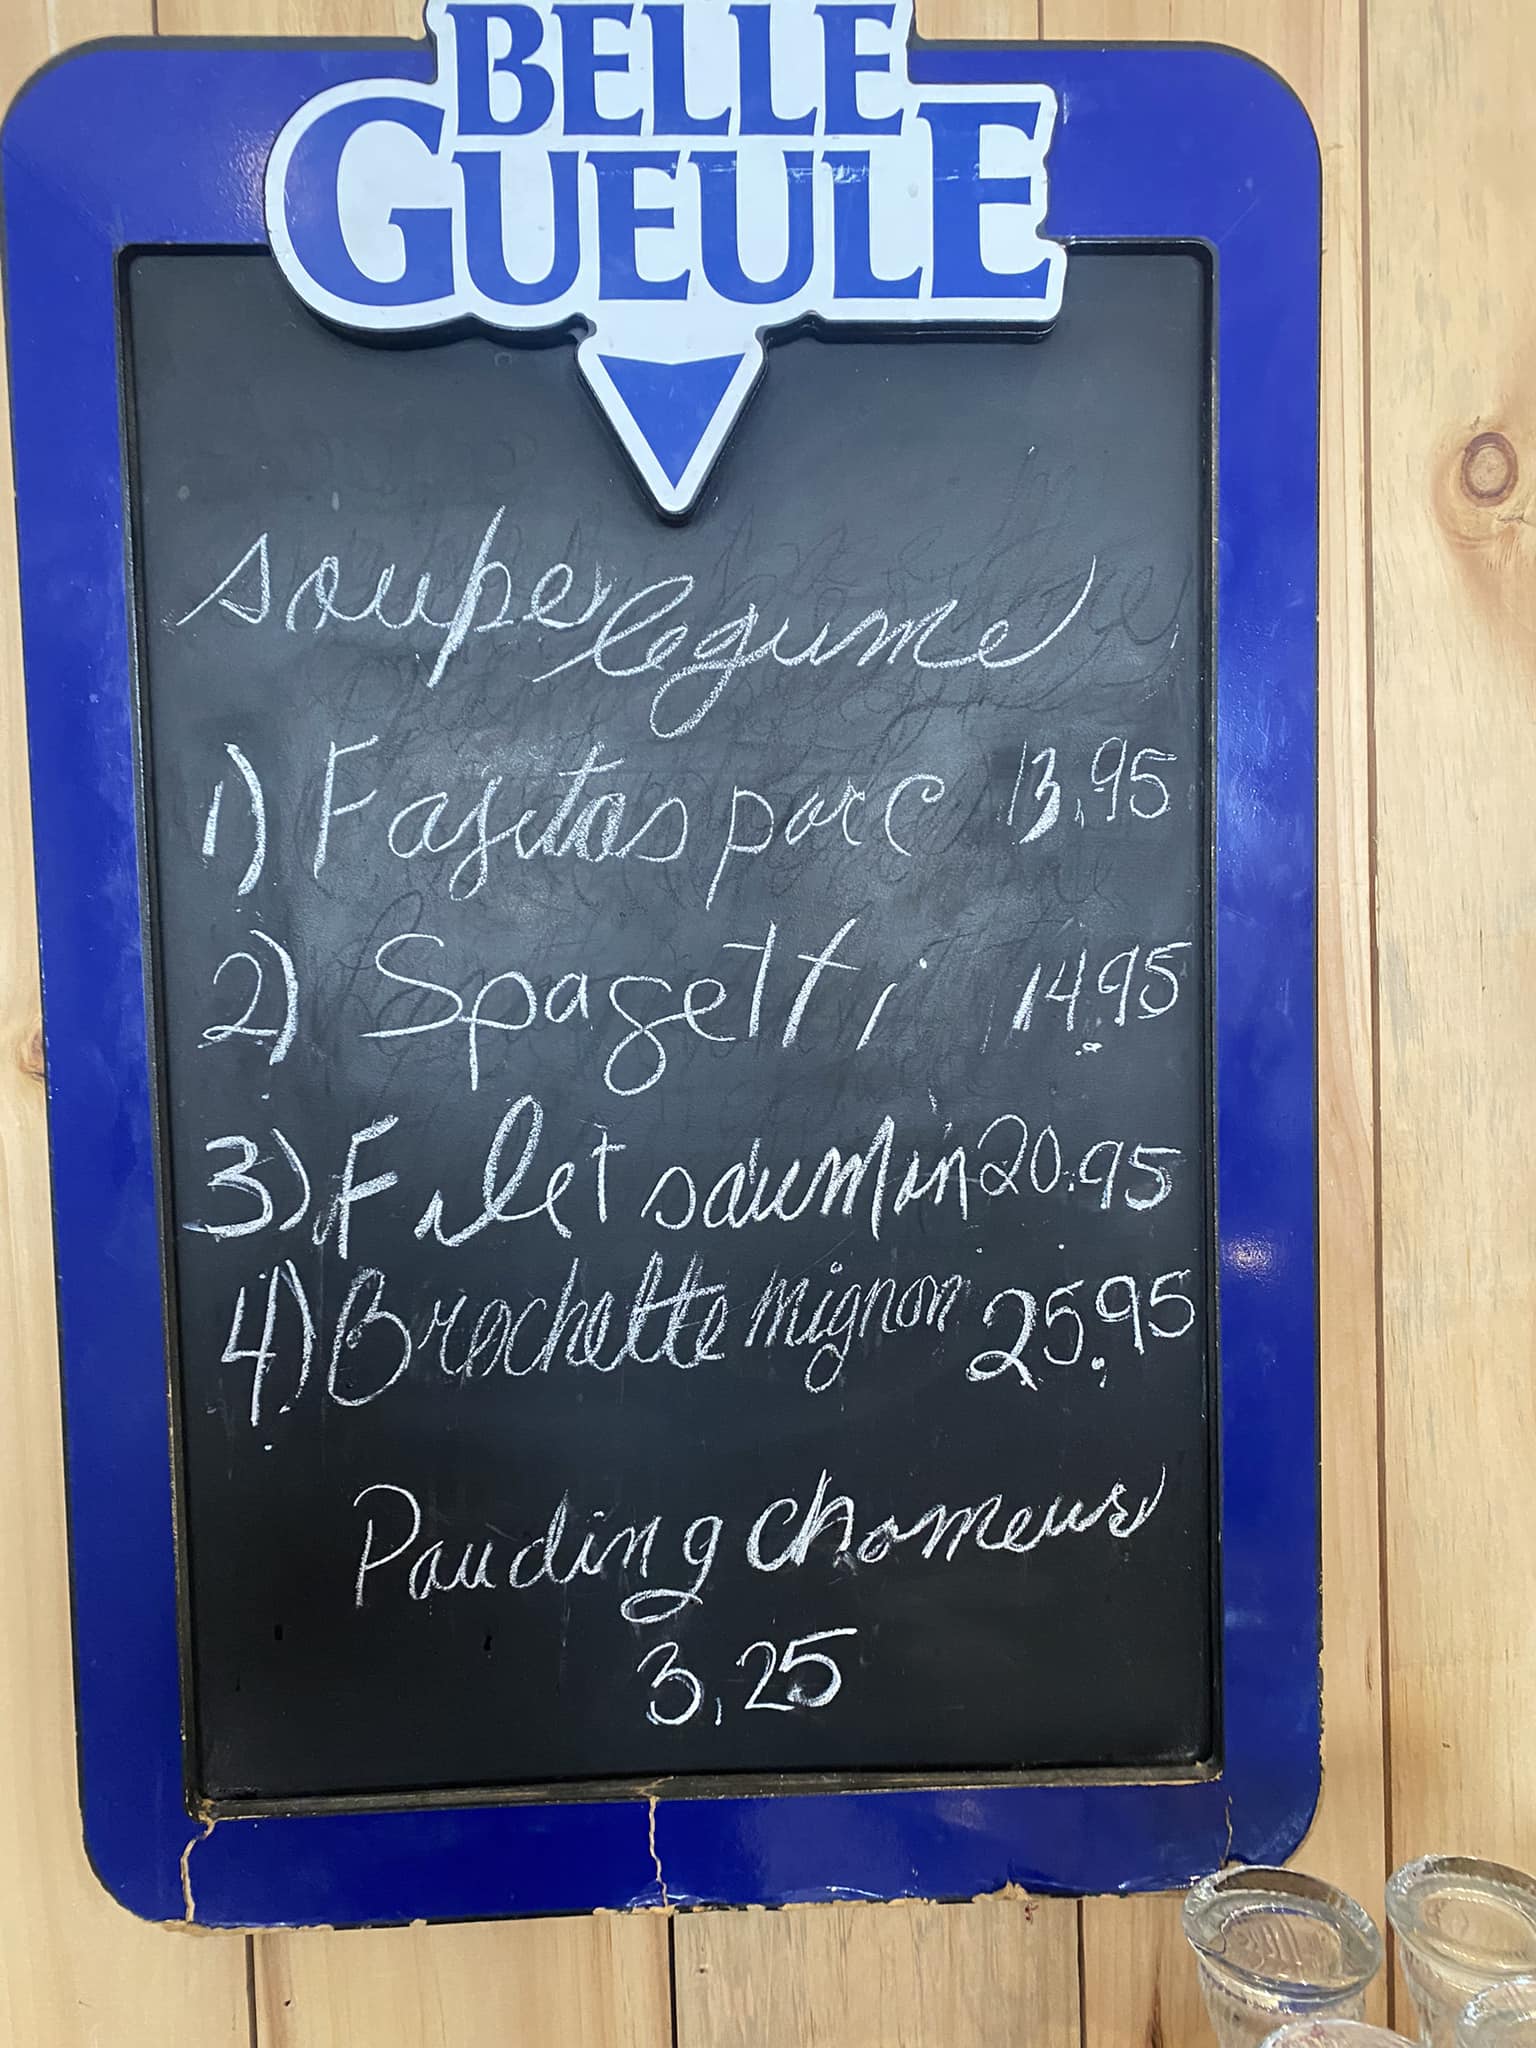 BELLE
GUEULE
soupe legume
1) Fajitas porc 13,95
2) Spagetti 14.95
3) Filet saumon 20.95
4) Brochette mignon 25.95
Pouding chomeur
3,25